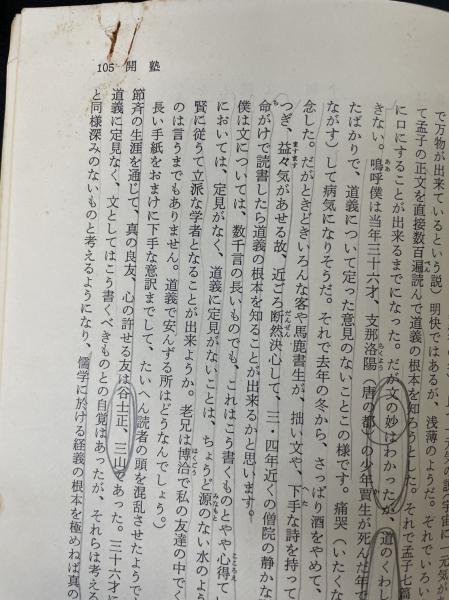 105 開塾
で万物が出来ているという説)明快ではあるが、浅薄のようだ。それでいろい
て孟子の正文を直接数百遍読んで道義の根本を知ろうとした。それで孟子七篇
に口にすることが出来るまでになった。だが文の妙はわかったが、道のくわし
きない。嗚呼僕は当年三十六才、支那洛陽(唐の都)の少年賈生が死んだ年で
たばかりで、道義について定った意見のないことこの様です。痛哭(いたくな
ながす)して病気になりそうだ。それで去年の冬から、さっぱり酒をやめて、
念した。だがときどきいろんな客や馬鹿書生が、拙い文や、下手な詩を持って
つぎ、益々気があせる故、近ごろ断然決心して、三・四年近くの僧院の静かな
命がけで読書したら道義の根本を知ることが出来るかと思います。
僕は文については、数千言の長いものでも、これはこう書くものとやや心得て
においては、定見がなく、道義に定見がないことは、ちょうど源のない水のよう
賢に従うて立派な学者となることが出来ようか。老兄は博洽で私の友達の中でく
のは言うまでもありません。道義で安んずる所はどうなんでしょう。)
長い手紙をおまけに下手な意訳までして、たいへん読者の頭を混乱させたようで
節斉の生涯を通じて、真の良友、心の許せる友は谷士正、三山であった。三十六才に
道義に定見なく、文としてはこう書くべきものとの自覚はあったが、それらは考える
と同様深みのないものと考えるようになり、儒学に於ける経義の根本を極めねば真の